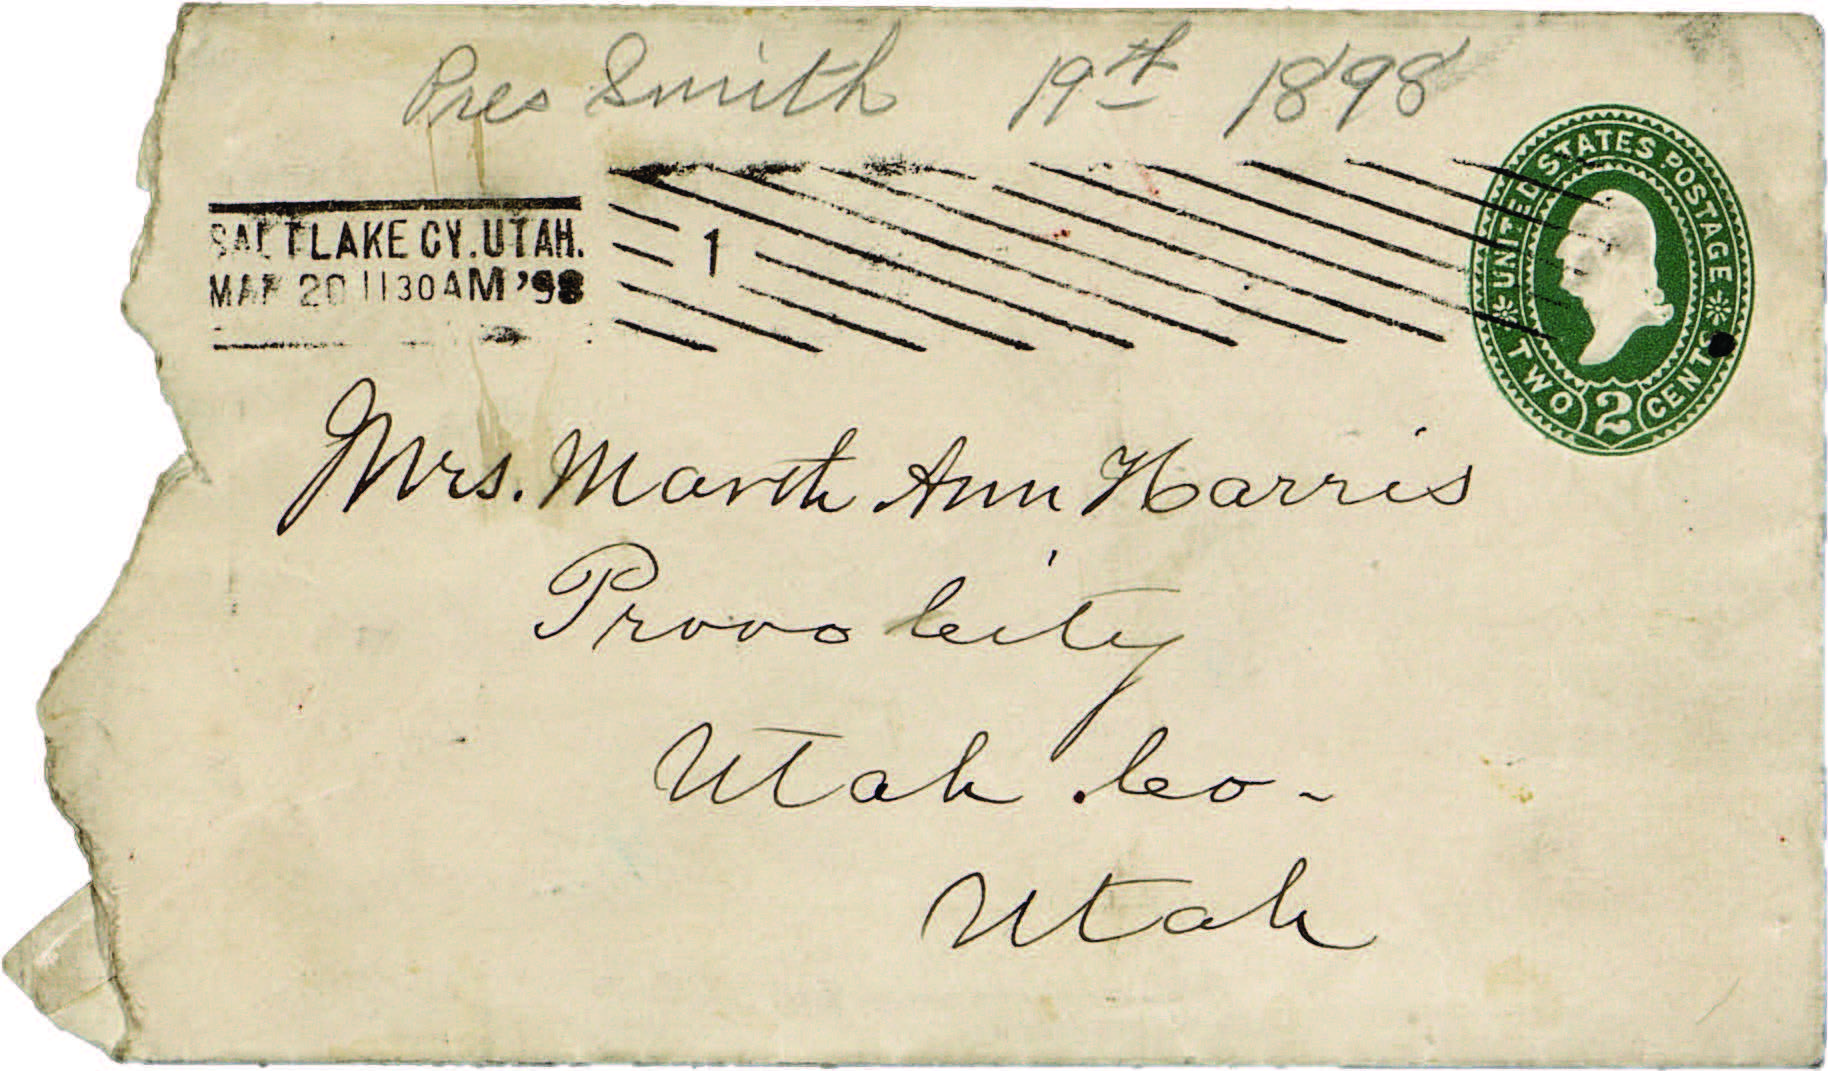 Pres Smith 19th 1898
SALT LAKE CY. UTAH.
MAR 20 1130 AM '98
1
UNITED STATES POSTAGE
TWO 2 CENTS
Mrs. Marth Ann Harris
Provo City
Utah Co.
Utah